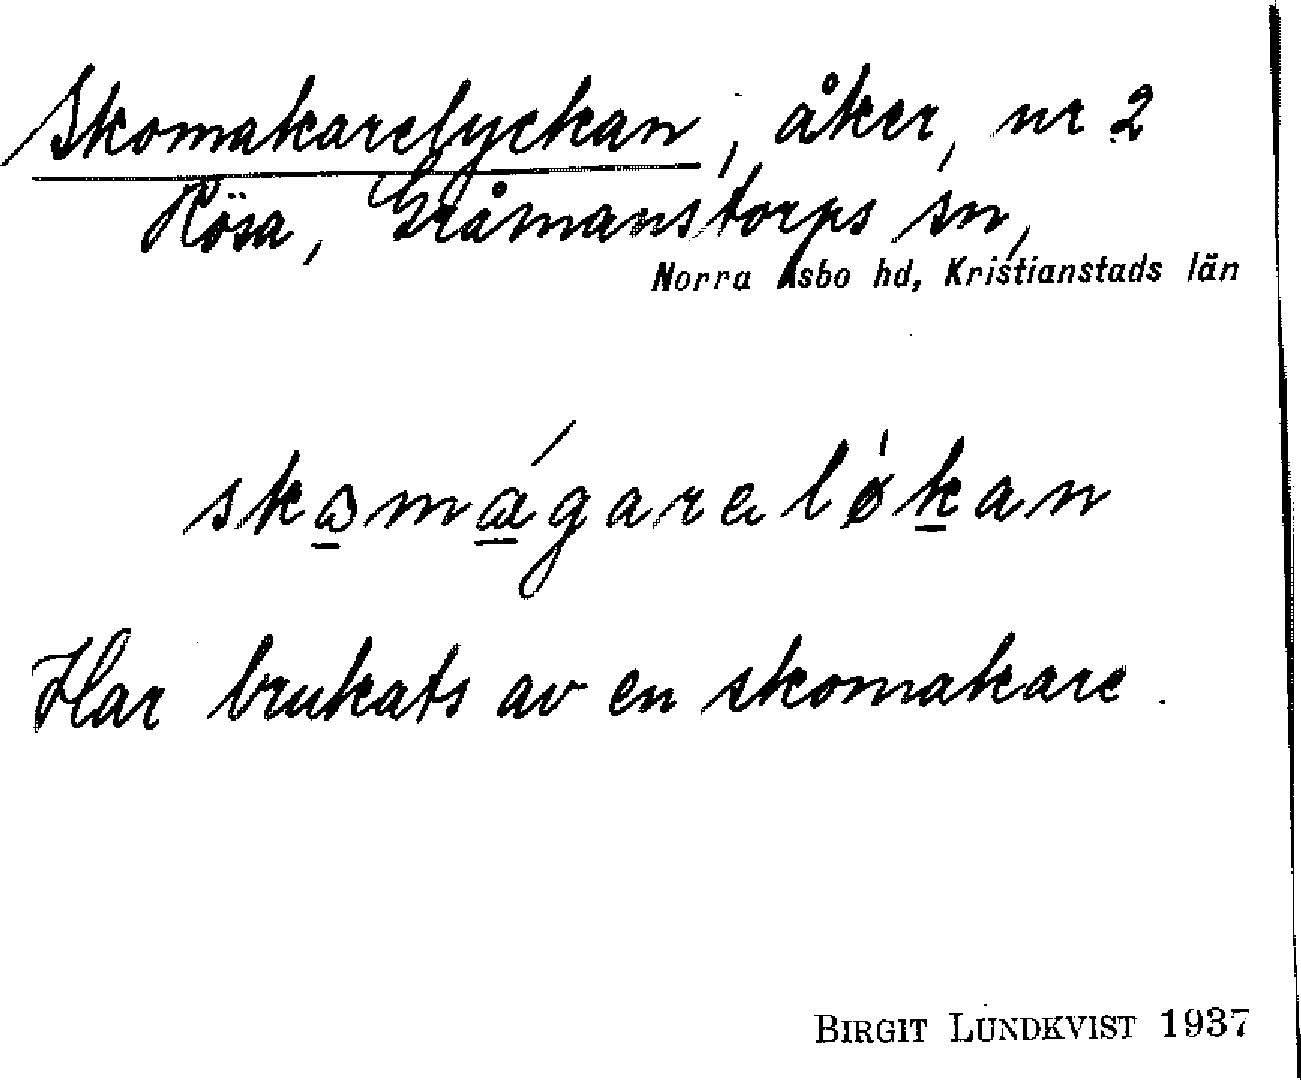 Skomakarelyckan, åker, nr 2
Rösa, Gråmanstorps sn,
Norra Åsbo hd, Kristianstads län
skωmágarɐlø̍kan
Har brukats av en skomakare.
BIRGIT LUNDKVIST 1937